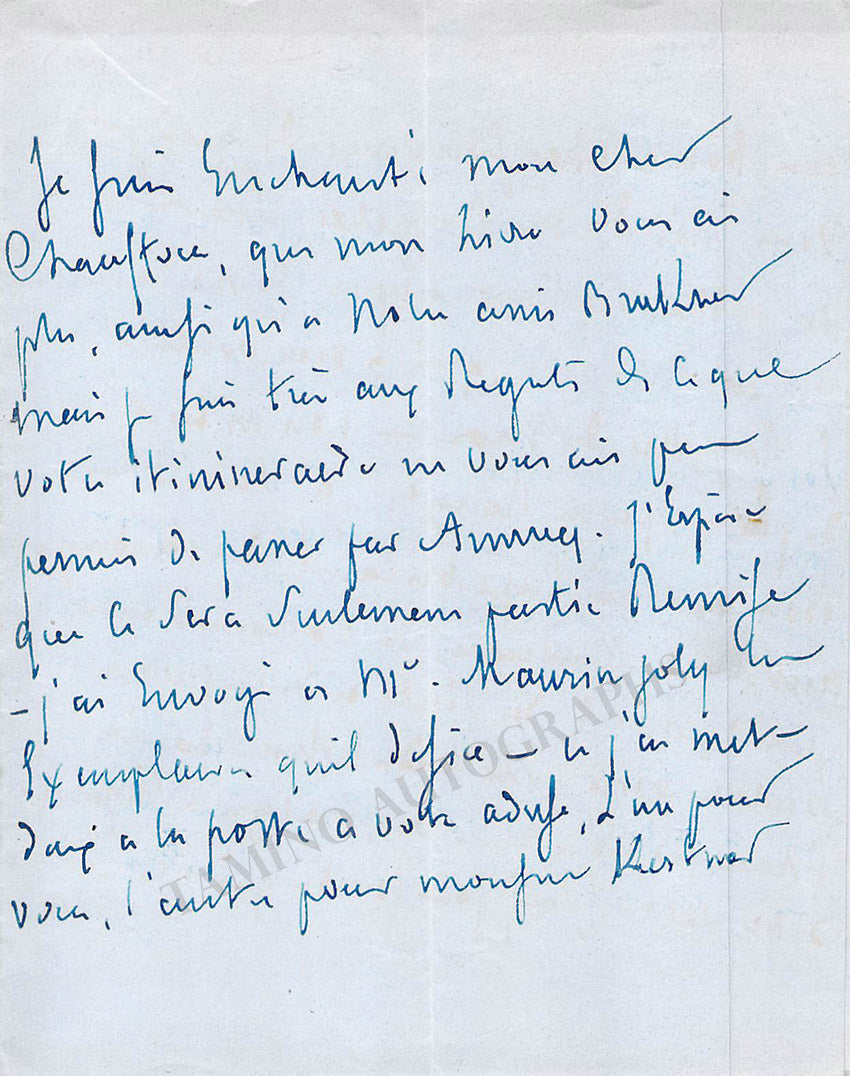 Je suis Enchanté mon cher
que mon livre vous ais
plu, aussi qu'a Notre ami
mais je suis très aux Regrets de ce que
votre itinineraire ne vous ais pas
permis de passer par Annecy. j'Espère
que ce sera seulement partie Remise
– j'ai Envoyé a Mr. Maurin Joly les
Exemplaires qu'il desire – et j'en met –
deux a la poste a votre adresse, L'un pour
vous, l'autre pour monsieur
TAMINO AUTOGRAPHS